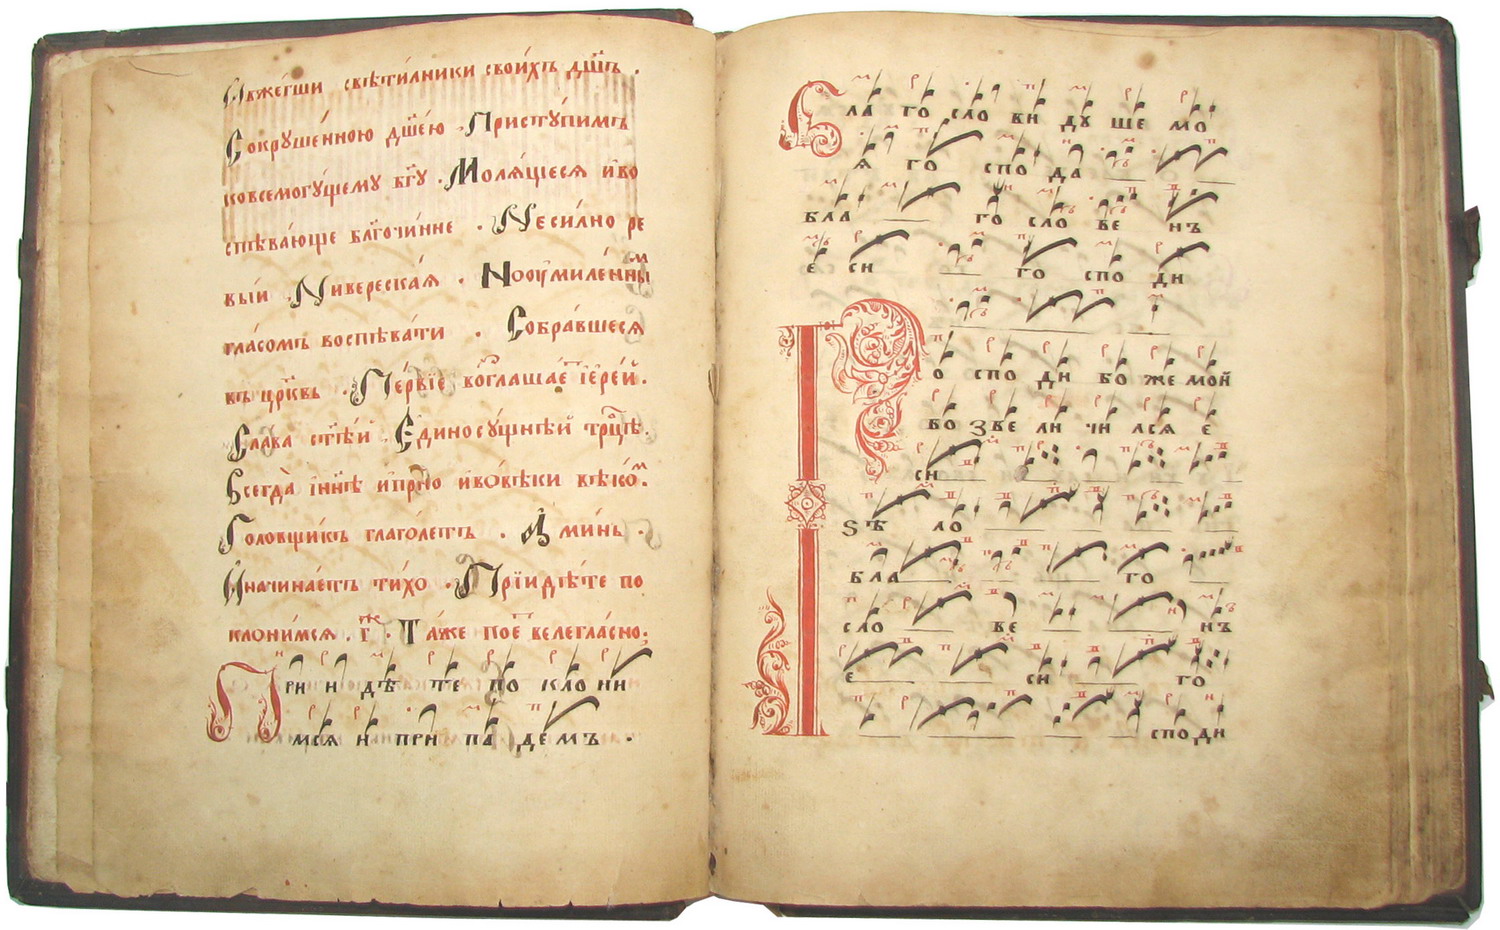 Ивже́гши свѣти́лники свои́хъ дш҃ъ .
Сокруше́нною дш҃е́ю . Присту́пимъ
ковсемогу́щему бг҃у . Моля́щеся и҆во
спѣва́юще бл҃гочи́нне . Несилно ре
вы́и . Ниверескаѧ . Ноѹмиле́нны᷆м
гла́сомъ воспѣва́ти . Собра́вшеся
въ цр҃къвь . Пе́рвїе воглаша́е іере́й .
Слава ст҃ѣ́й . Единосу́щнѣй трⷪ҇цѣ .
Всегда̀ і҆нн҃ѣ и҆при́сно и҆во́вѣки вѣко́м .
Головщикъ глаго́летъ . Аминь .
И҆начина́етъ тихо . Прїидѣ́те по
клони́мся . г҃ . Та́же пое́ велегла́сно :
При и дѣ те по кло ни
мся и при па демъ .
Бла го сло ви ду ше мо
я го спо да
бла го сло ве нъ
е си го спо ди
Го спо ди бо же мой
во зве ли чи лся е
си
ѕѣ ло
бла го
сло ве нъ
е си го
споди